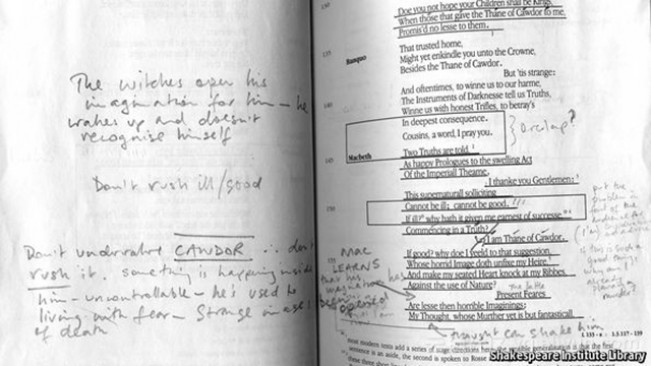 The witches open his
imagination for him – he
wakes up and doesn't
recognise himself
Don't rush ill/good
Don't undervalue CAWDOR ∴ don't
rush it. something is happening inside
him – uncontrollable – he's used to
living with fear – strange images
of death
Doe you not hope your Children shall be Kings,
When those that gave the Thane of Cawdor to me,
Promis'd no lesse to them.
Banquo
That trusted home,
Might yet enkindle you unto the Crowne,
Besides the Thane of Cawdor.
But 'tis strange:
140
And oftentimes, to winne us to our harme,
The Instruments of Darknesse tell us Truths,
Winne us with honest Trifles, to betray's
In deepest consequence.
Cousins, a word, I pray you.
overlap?
Macbeth
Two Truths are told,
145
As happy Prologues to the swelling Act
Of the Imperiall Theame.
I thanke you Gentlemen:
This supernaturall solliciting
150
Cannot be ill; cannot be good.
If ill? why hath it given me earnest of successe,
Commencing in a Truth?
I am Thane of Cawdor.
If good? why doe I yeeld to that suggestion,
Whose horrid Image doth unfixe my Heire,
And make my seated Heart knock at my Ribbes,
Against the use of Nature?
Present Feares
Are lesse then horrible Imaginings:
My Thought, whose Murther yet is but fantasticall,
MAC
LEARNS
that his
imagination has
been
opened
put the
problem in
good thing
why am I
thought can shake him
most modern texts add a series of stage directions here
sentence is an aside, the second is spoken to Rosse
Shakespeare Institute Library